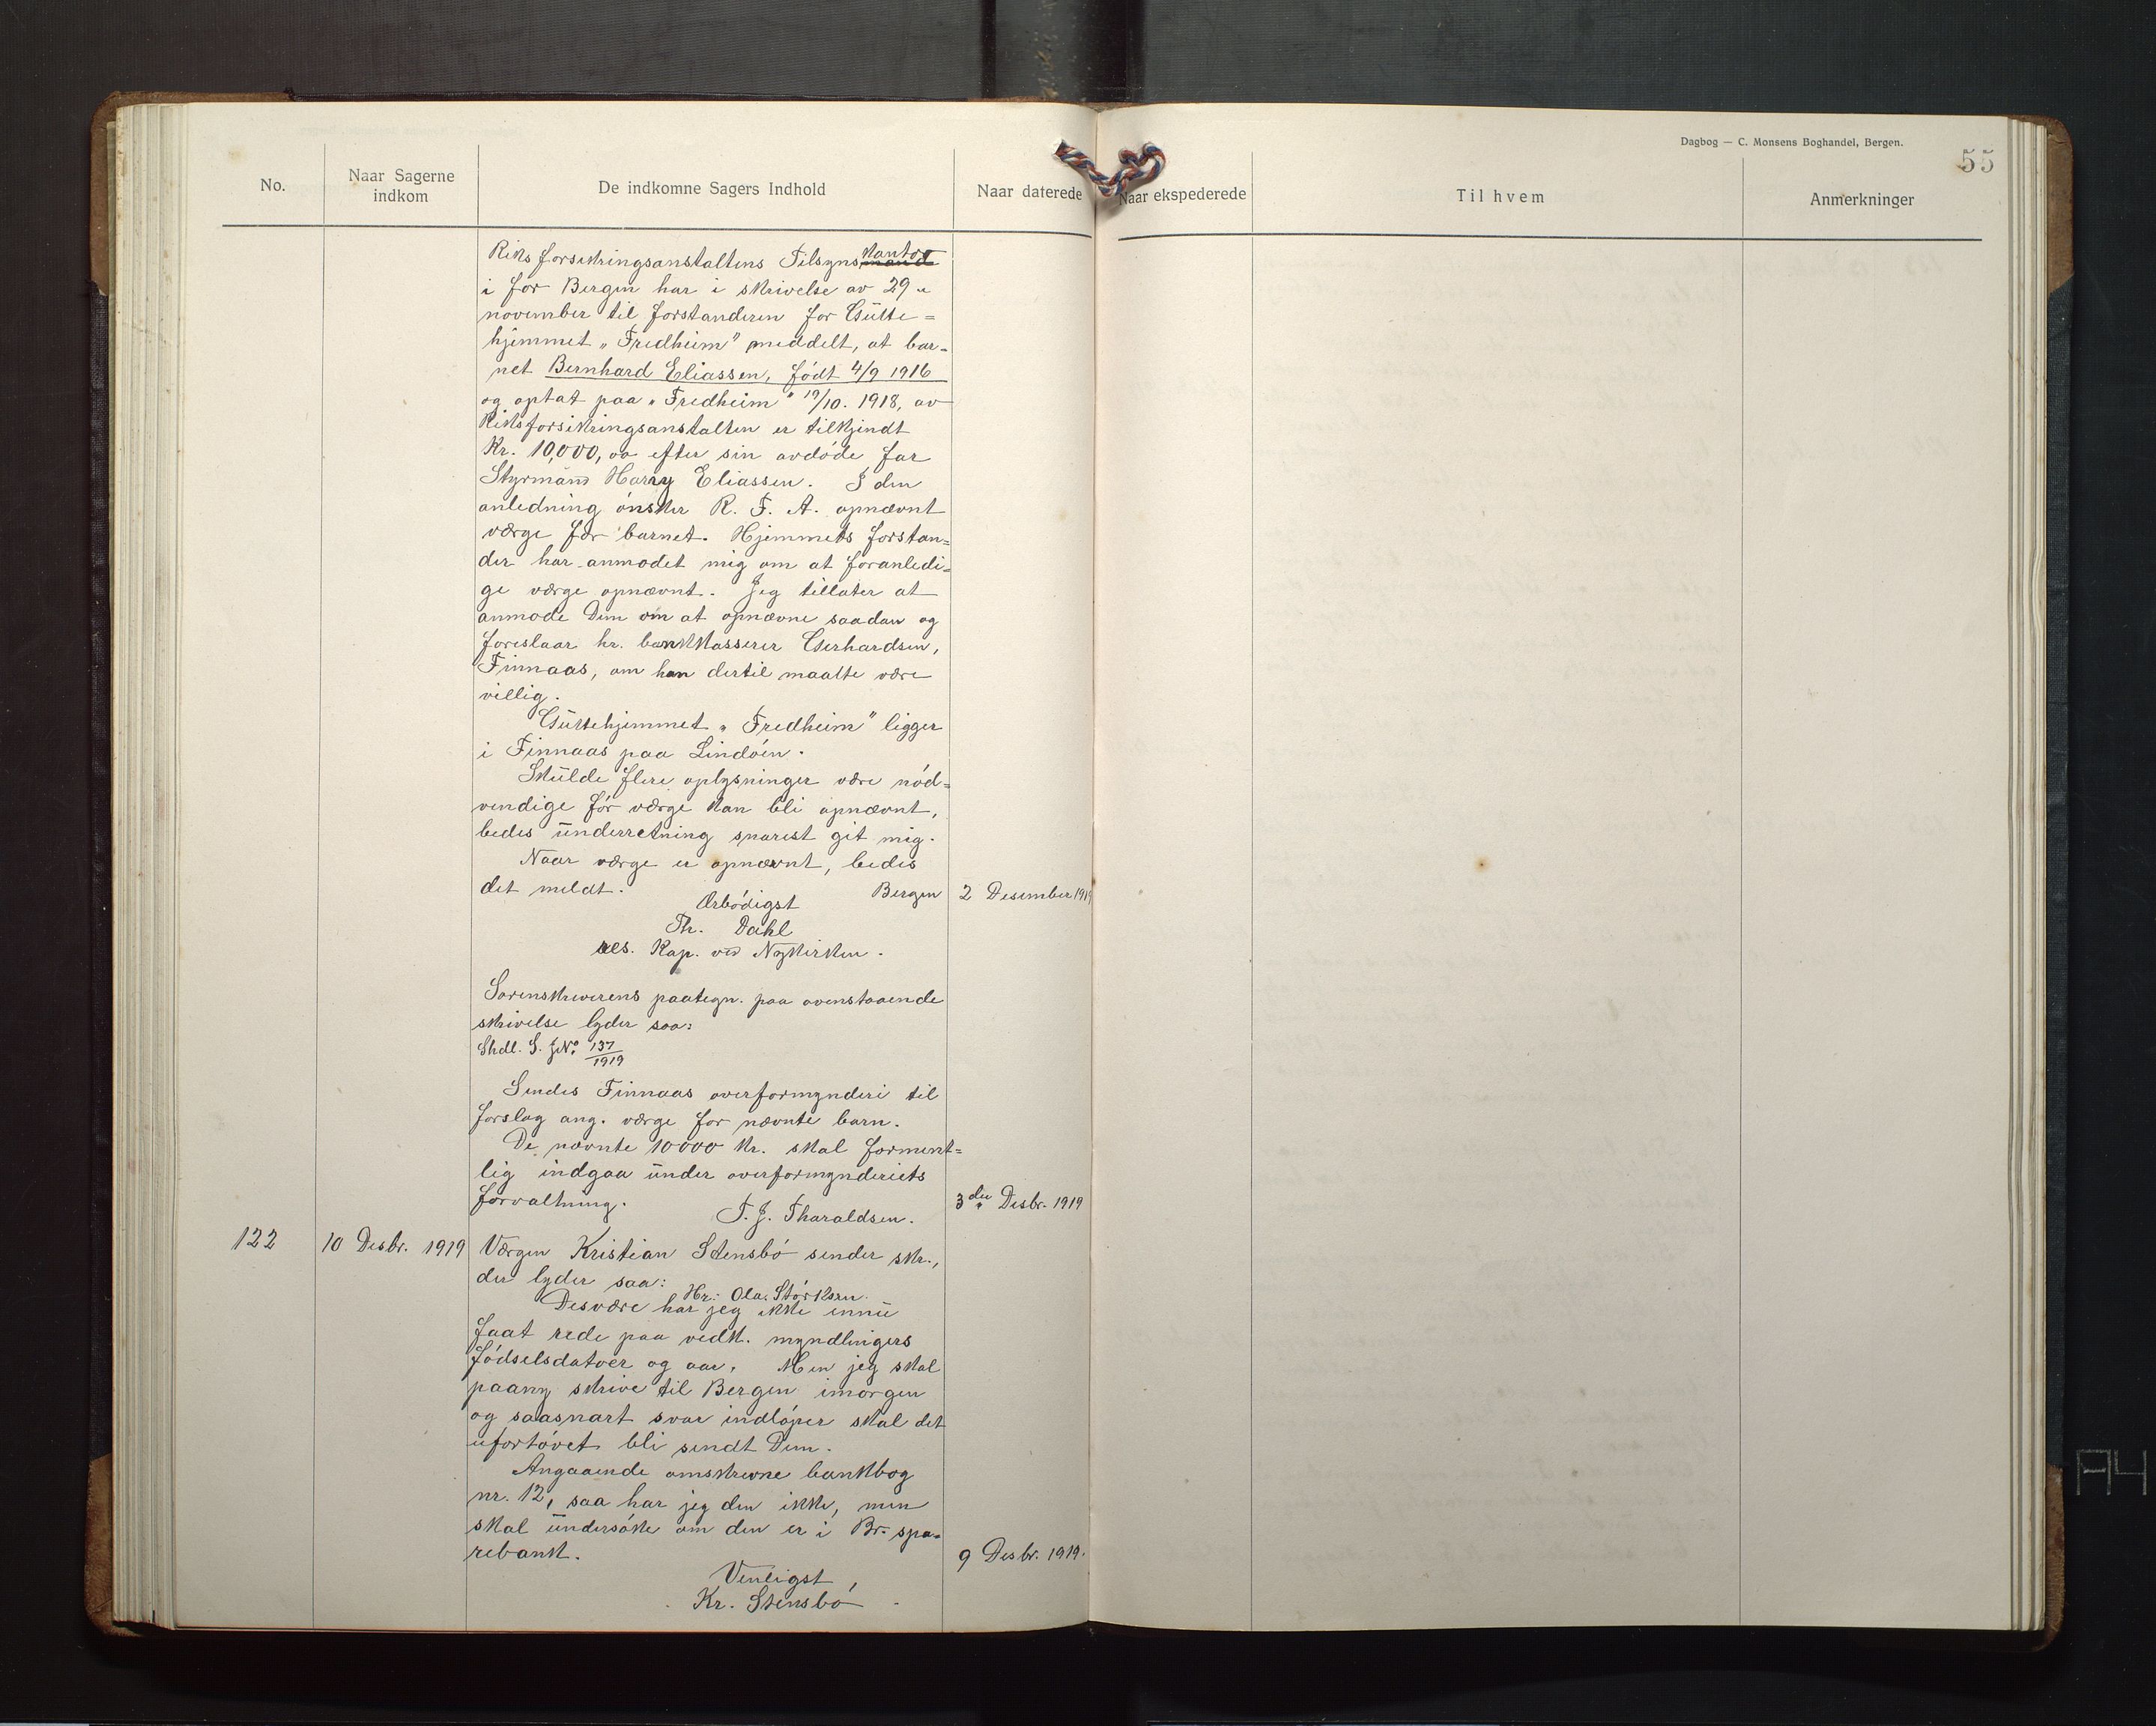 Dagbog — C. Monsens Boghandel, Bergen.
55
No.
Naar Sagerne indkom
De indkomne Sagers Indhold
Naar daterede
Naar ekspederede
Til hvem
Anmerkninger
Riksforsikringsanstaltens Tilsynskontor
i for Bergen har i skrivelse av 29 "
november til forstanderen for Gutte=
hjemmet „Fredheim" meddelt, at bar=
net Bernhard Eliassen, født 4/9 1916
og optat paa „Fredheim" 19/10. 1918, av
Riksforsikringsanstalten er tilkjendt
Kr. 10,000, oo efter sin avdøde far
Styrmann Harry Eliassen. I den
anledning ønsker R. F. A. opnævnt
værge for barnet. Hjemmets forstan=
der har anmodet mig om at foranledi=
ge værge opnævnt. Jeg tillater at
anmode Dem om at opnævne saadan og
foreslaar hr. bankkasserer Gerhardsen,
Finnaas, om han dertil maatte være
villig.
Guttehjemmet „Fredheim" ligger
i Finnaas paa Lindøen.
Skulde flere oplysninger være nød=
vendige før værge kan bli opnævnt,
bedes underretning snarest git mig.
Naar værge er opnævnt, bedes
det meldt. Bergen 2 Desember 1919
Ærbødigst
Th. Dahl
res. Kap. ved Nykirken.
Sorenskrverens paategn. paa ovenstaaende
skrivelse lyder saa:
Shdl. S. J№ 137/1919
Sendes Finnaas overformynderi til
forslag ang. værge for nævnte barn.
De nævnte 10000 kr. skal forment=
lig indgaa under overformynderiets
forvaltning. 3die Desbr. 1919
T. J. Tharaldsen.
122 10 Desbr. 1919 Værgen Kristian Stensbø sender skr.,
der lyder saa:
Hr: Ola. Størksen.
Desvære har jeg ikke ennu
faat rede paa vedk. myndlingers
fødselsdatoer og aar. Men jeg skal
paany skrive til Bergen imorgen
og saasnart svar indløper skal det
ufortøvet bli sendt Dem.
Angaaende omskrevne bankbog
nr. 12, saa har jeg den ikke, men
skal undersøke om den er i Br. spa=
rebank. 9 Desbr. 1919.
Venligst,
Kr. Stensbø
A4